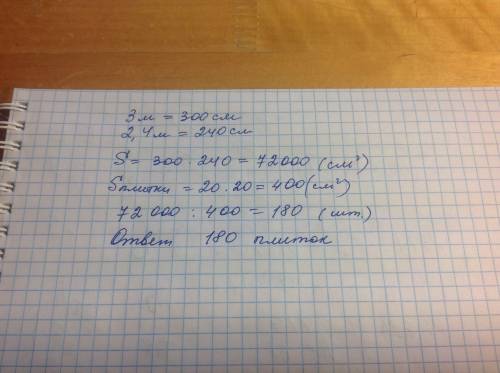 3 м = 300 см
2,4 м = 240 см
S = 300 · 240 = 72000 (см²)
Sплитки = 20 · 20 = 400 (см²)
72 000 : 400 = 180 (шт.)
Ответ 180 плиток